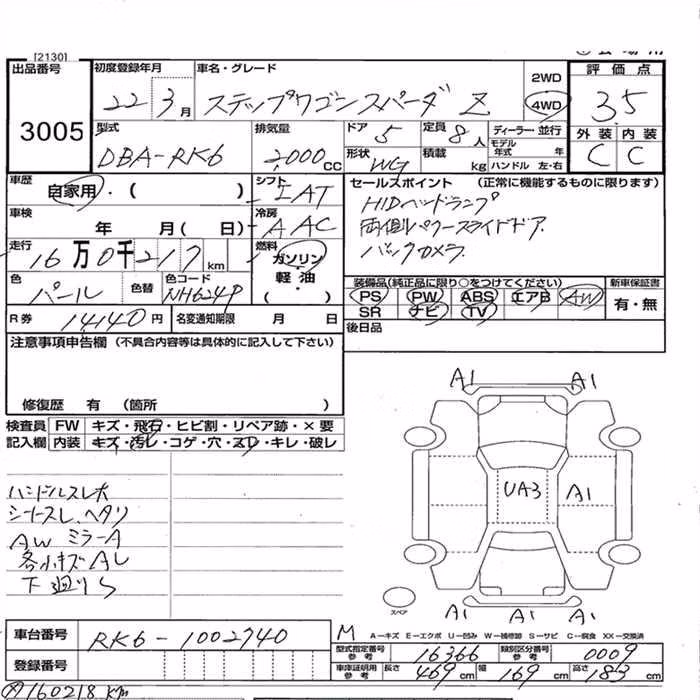 [2130]
出品番号 初度登録年月 車名・グレード 2WD 評価点
3005 22 3月 ステップワゴンスパーダ Z 4WD 3.5
型式 排気量 ドア 5 定員 8人 ディーラー・並行 外装 内装
モデル年式 年
DBA-RK6 2000CC 形状 WG 積載 kg ハンドル 左・右 C C
車歴 自家用・( ) シフト IAT セールスポイント (正常に機能するものに限ります)
HIDヘッドランプ
車検 年 月( 日) 冷房 AAC 両側パワースライドドア
走行 16万0千217km 燃料 ガソリン・軽油・( ) バックカメラ
色 パール 色替 色コード NH624P 装備品(純正品に限り○をつけてください) 新車保証書
PS PW ABS エアB AW 有・無
R券 14140円 名変通知期限 月 日 SR ナビ TV
後日品
注意事項申告欄 (不具合内容等は具体的に記入して下さい)
修復歴 有 (箇所 )
検査員記入欄 FW キズ・飛石・ヒビ割・リペア跡・×要
内装 キズ・汚レ・コゲ・穴・スレ・キレ・破レ
A1 A1
ハンドルスレ大
シートスレ、ヘタリ
AW ミラーA
各小キズAU
下廻りS
UA3 A1
スペア
A1 A1 A1
車台番号 RK6-1002740
M A-キズ E-エクボ U-凹み W-補修跡 S-サビ C-腐食 XX-交換済
型式指定番号参考 16366 類別区分番号参考 0009
登録番号 車庫証明用参考 長さ 469cm 幅 169cm 高さ 183cm
160218km